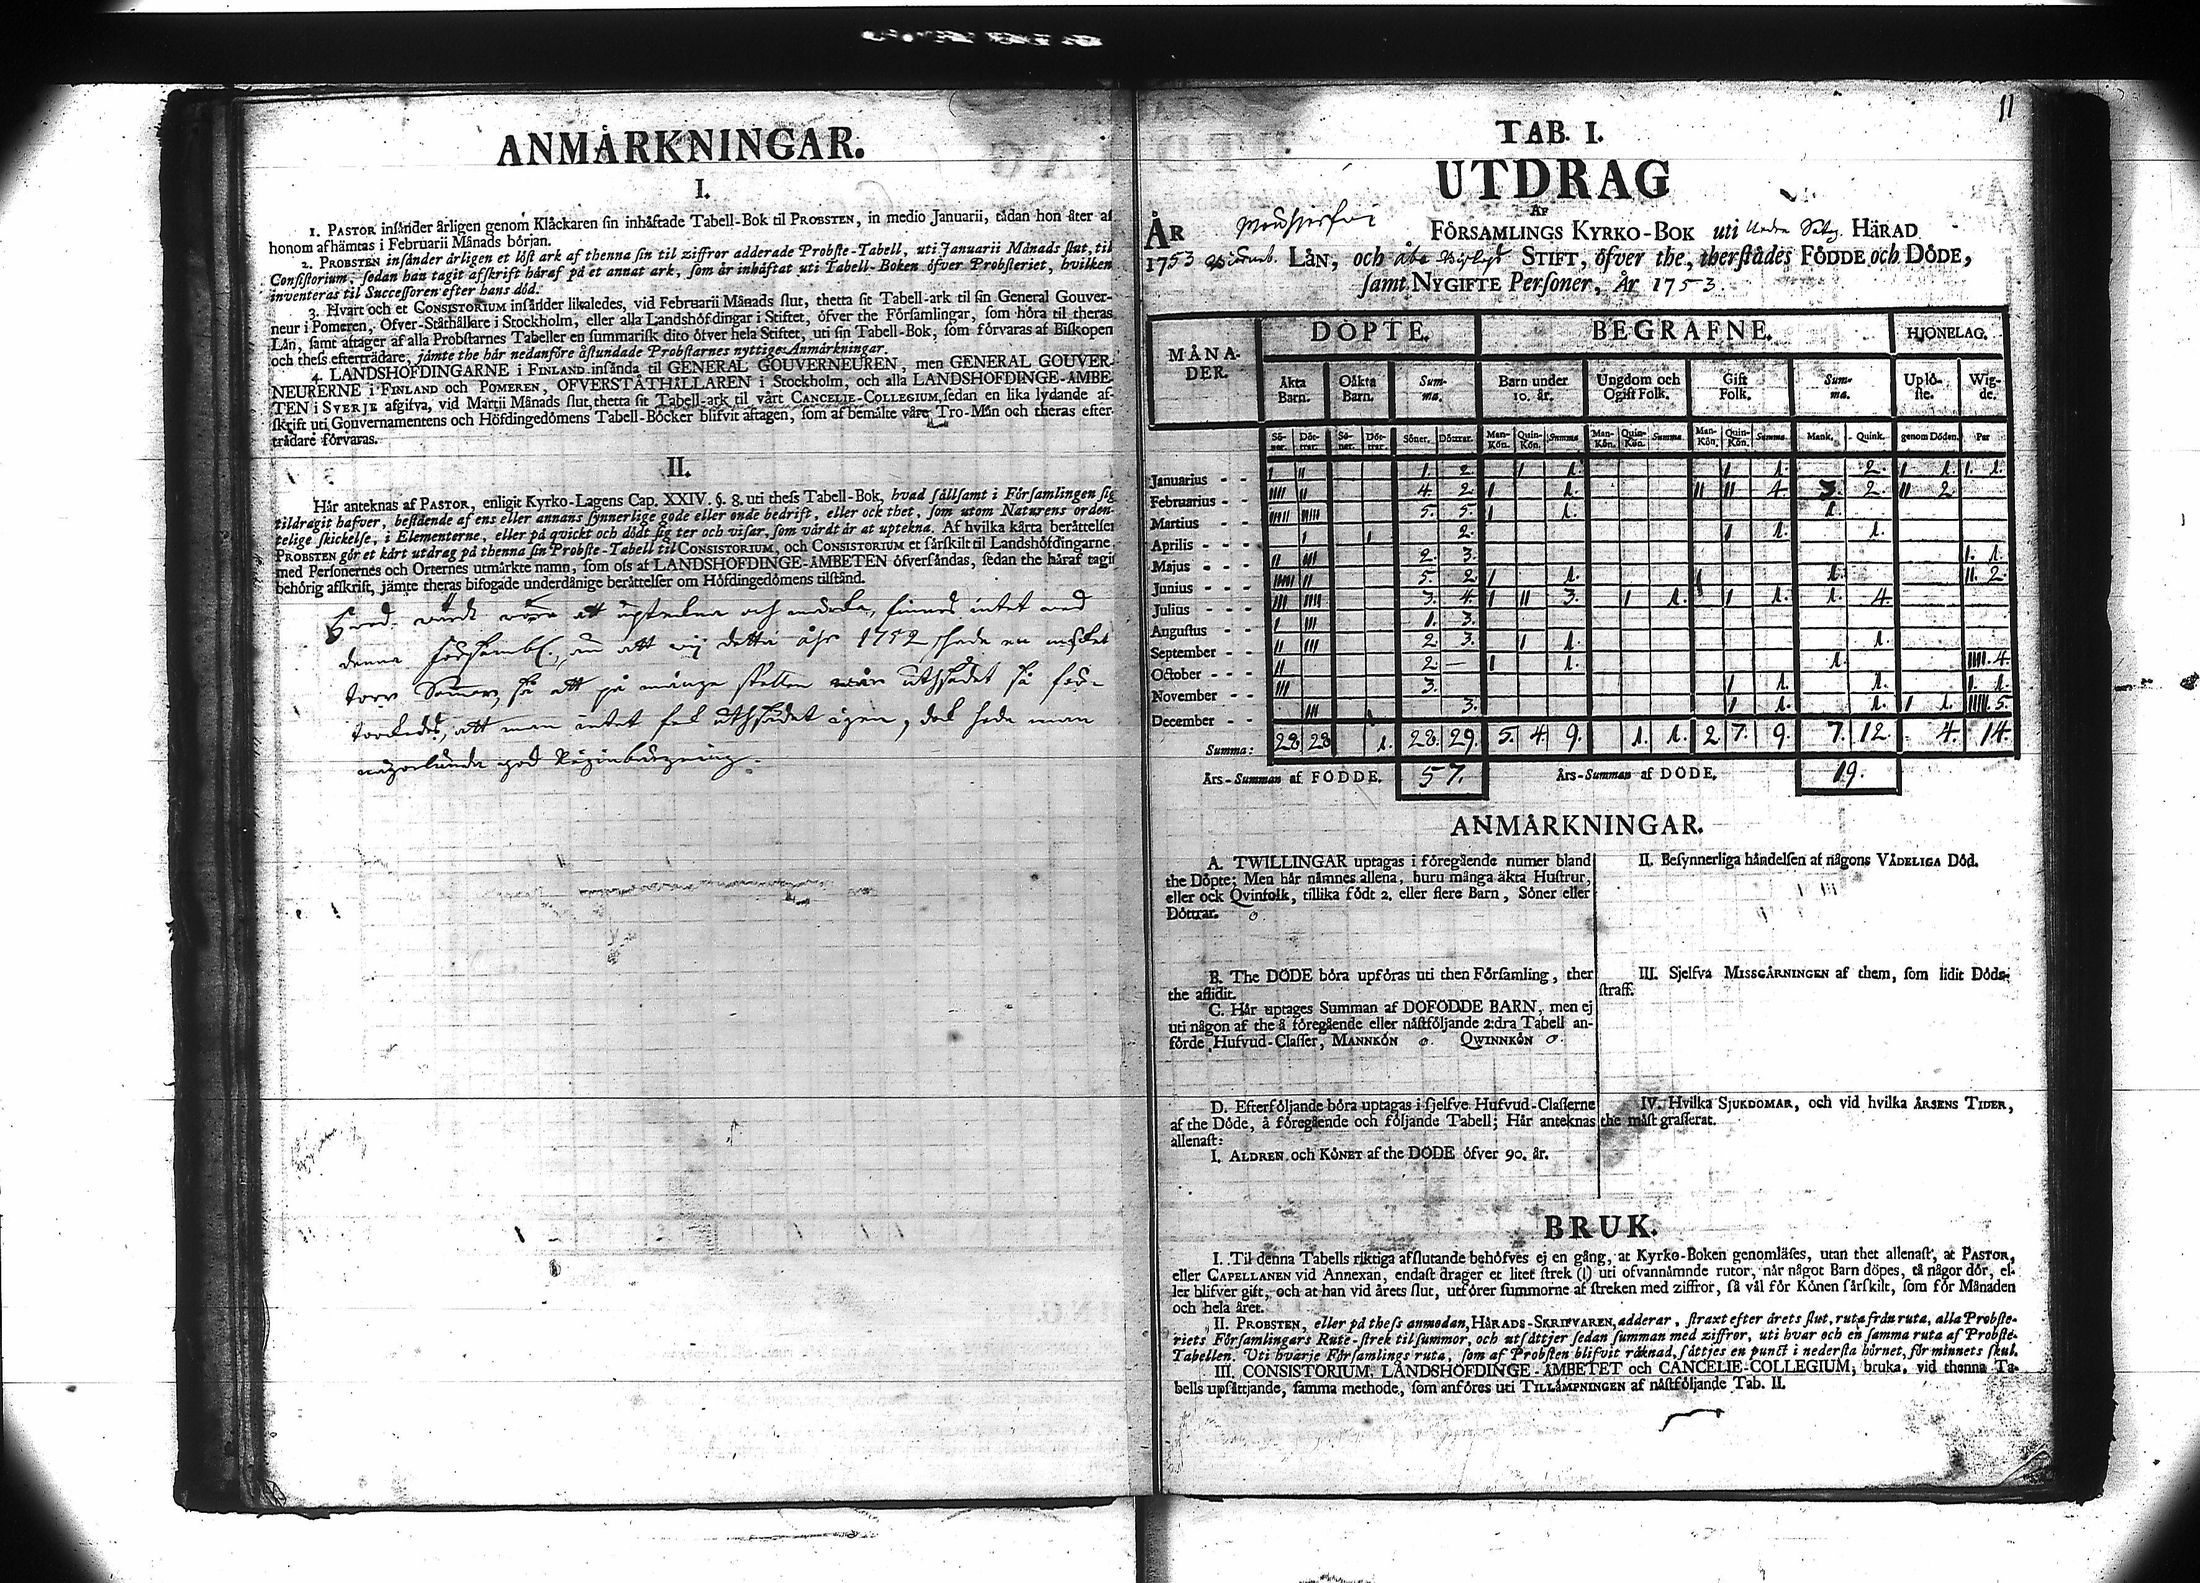 ANMÄRKNINGAR.
I.
1. PASTOR insänder årligen genom Klåckaren sin inhäftade Tabell-Bok til PROBSTEN, in medio Januarii, tådan hon åter af
honom afhämtas i Februarii Månads början.
2. PROBSTEN insänder årligen et löst ark af thenna sin til ziffror adderade Probste-Tabell, uti Januarii Månads slut, til
Consistorium; sedan han tagit afskrift häraf på et annat ark, som är inhäftat uti Tabell-Boken öfver Probsteriet, hvilken
inventeras til Successoren efter hans död.
3. Hvart och et CONSISTORIUM insänder likaledes, vid Februarii Månads slut, thetta sit Tabell-ark til sin General Gouver-
neur i Pomeren, Öfver-Ståthållare i Stockholm, eller alla Landshöfdingar i Stiftet, öfver the Församlingar, som höra til theras
Län, samt aftager af alla Probstarnes Tabeller en summarisk dito öfver hela Stiftet, uti sin Tabell-Bok, som förvaras af Biskopen
och thess efterträdare, jämte the här nedanföre åstundade Probstarnes nyttige Anmärkningar.
4. LANDSHÖFDINGARNE i FINLAND insända til GENERAL GOUVERNEUREN, men GENERAL GOUVER-
NEURERNE i FINLAND och POMEREN, ÖFVERSTÅTHÅLLAREN i Stockholm, och alla LANDSHÖFDINGE-ÄMBE-
TEN i SVERJE afgifva, vid Martii Månads slut, thetta sit Tabell-ark til vårt CANCELIE-COLLEGIUM, sedan en lika lydande af-
skrift uti Gouvernamentens och Höfdingedömens Tabell-Böcker blifvit aftagen, som af bemälte våre Tro-Män och theras efter-
trädare förvaras.
II.
Här anteknas af PASTOR, enligit Kyrko-Lagens Cap. XXIV. §. 8. uti thess Tabell-Bok, hvad sällsamt i Församlingen sig
tildragit hafver, bestående af ens eller annans synnerlige gode eller onde bedrift, eller ock thet, som utom Naturens orden-
telige skickelse, i Elementerne, eller på qvickt och dödt sig ter och visar, som värdt är at uptekna. Af hvilka kårta berättelser
PROBSTEN gör et kårt utdrag på thenna sin Probste-Tabell til CONSISTORIUM, och CONSISTORIUM et särskilt til Landshöfdingarne,
med Personernes och Orternes utmärkte namn, som oss af LANDSHÖFDINGE-ÄMBETEN öfversändas, sedan the häraf tagit
behörig afskrift, jämte theras bifogade underdånige berättelser om Höfdingedömens tilstånd.
wärdt wara att upteckna och märka, finnes intet wed
denna försambl., än att wij detta åhr 1752 hade en mycket
torr Sommar, så att på många ställen utsädet så för-
torckades, att man intet fek utsädet igen, dok hade man
någorlunda god
11
TAB. I.
UTDRAG
AF
ÅR FÖRSAMLINGS KYRKO-BOK uti HÄRAD
1753 LÄN, och åbo STIFT, öfver the, therstädes FÖDDE och DÖDE,
samt NYGIFTE Personer, År 1753.
MÅNA-DER. DÖPTE. BEGRAFNE. HJONELAG.
Äkta Barn. Oäkta Barn. Summa. Barn under 10. år. Ungdom och Ogift Folk. Gift Folk. Summa. Uplöste. Wigde.
Söner. Döttrar. Söner. Döttrar. Söner. Döttrar. Man-Kön. Quin-Kön. Summa Man-Kön. Quin-Kön. Summa. Man-Kön. Quin-Kön. Summa. Mank. Quink. genom Döden. Par
Januarius - - I II 1. 2. I 1. I 1. 2. I 1. I. 1.
Februarius - - IIII II 4. 2 I 1. II II 4. 3. 2. II 2.
Martius - - IIIII IIIII 5. 5. I 1. 1.
Aprilis - - - I I 2. I 1. 1.
Majus - - - II III 2. 3. I. 1.
Junius - - - IIIII II 5. 2 I 1. I 1. II. 2.
Julius - - - III IIII 3. 4 I II 3. I 1. I 1. 1. 4.
Augustus - - I III 1. 3.
September - - II III 2. 3. I 1. 1.
October - - - II 2. — I 1. 1. IIII. 4.
November - - III 3. I 1. 1. I. 1.
December - - III 3. I 1. 1. I 1. IIIII. 5.
Summa: 28 28 1. 28. 29. 5. 4. 9. 1. 1. 2 7. 9. 7. 12. 4. 14.
Års-Summan af FÖDDE. 57. Års-Summan af DÖDE. 19.
ANMÄRKNINGAR.
A. TWILLINGAR uptagas i föregående numer bland
the Döpte; Men här nämnes allena, huru många äkta Hustrur,
eller ock Qvinfolk, tillika födt 2. eller flere Barn, Söner eller
Döttrar. 0
B. The DÖDE böra upföras uti then Församling, ther
the aflidit.
C. Här uptages Summan af DÖFÖDDE BARN, men ej
uti någon af the å föregående eller nästföljande 2:dra Tabell an-
förde Hufvud-Classer, MANNKÖN 0. QWINNKÖN 0.
D. Efterföljande böra uptagas i sjelfve Hufvud-Classerne
af the Döde, å föregående och följande Tabell; Här anteknas
allenast:
I. ÅLDREN och KÖNET af the DÖDE öfver 90. år.
II. Besynnerliga händelsen af någons VÅDELIGA Död.
III. Sjelfva MISSGÄRNINGEN af them, som lidit Döds-
straff.
IV. Hvilka SJUKDOMAR, och vid hvilka ÅRSENS TIDER,
the mäst grasserat.
BRUK.
I. Til denna Tabells riktiga afslutande behöfves ej en gång, at Kyrko-Boken genomläses, utan thet allenast, at PASTOR,
eller CAPELLANEN vid Annexan, endast drager et litet strek (I) uti ofvannämnde rutor, när något Barn döpes, tå någor dör, el-
ler blifver gift, och at han vid årets slut, utförer summorne af streken med ziffror, så väl för Könen särskilt, som för Månaden
och hela året.
II. PROBSTEN, eller på thess anmodan, HÄRADS-SKRIFVAREN, adderar, straxt efter årets slut, ruta från ruta, alla Probste-
riets Församlingars Rute-strek til summor, och utsättjer sedan summan med ziffror, uti hvar och en samma ruta af Probste-
Tabellen. Uti hvarje Församlings ruta, som af Probsten blifvit räknad, sättjes en punct i nedersta hörnet, för minnets skul.
III. CONSISTORIUM, LANDSHÖFDINGE-ÄMBETET och CANCELIE-COLLEGIUM, bruka, vid thenna Ta-
bells upsättjande, samma methode, som anföres uti TILLÄMPNINGEN af nästföljande Tab. II.